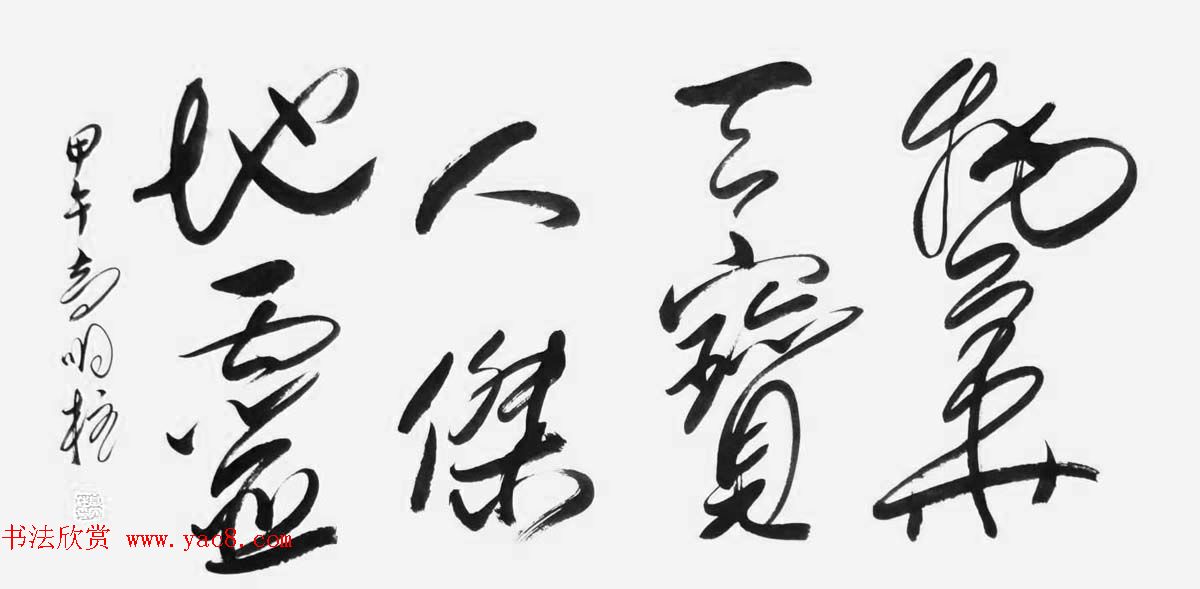 物華
天寶
人傑
地靈
甲午高明
书法欣赏 www.yac8.com